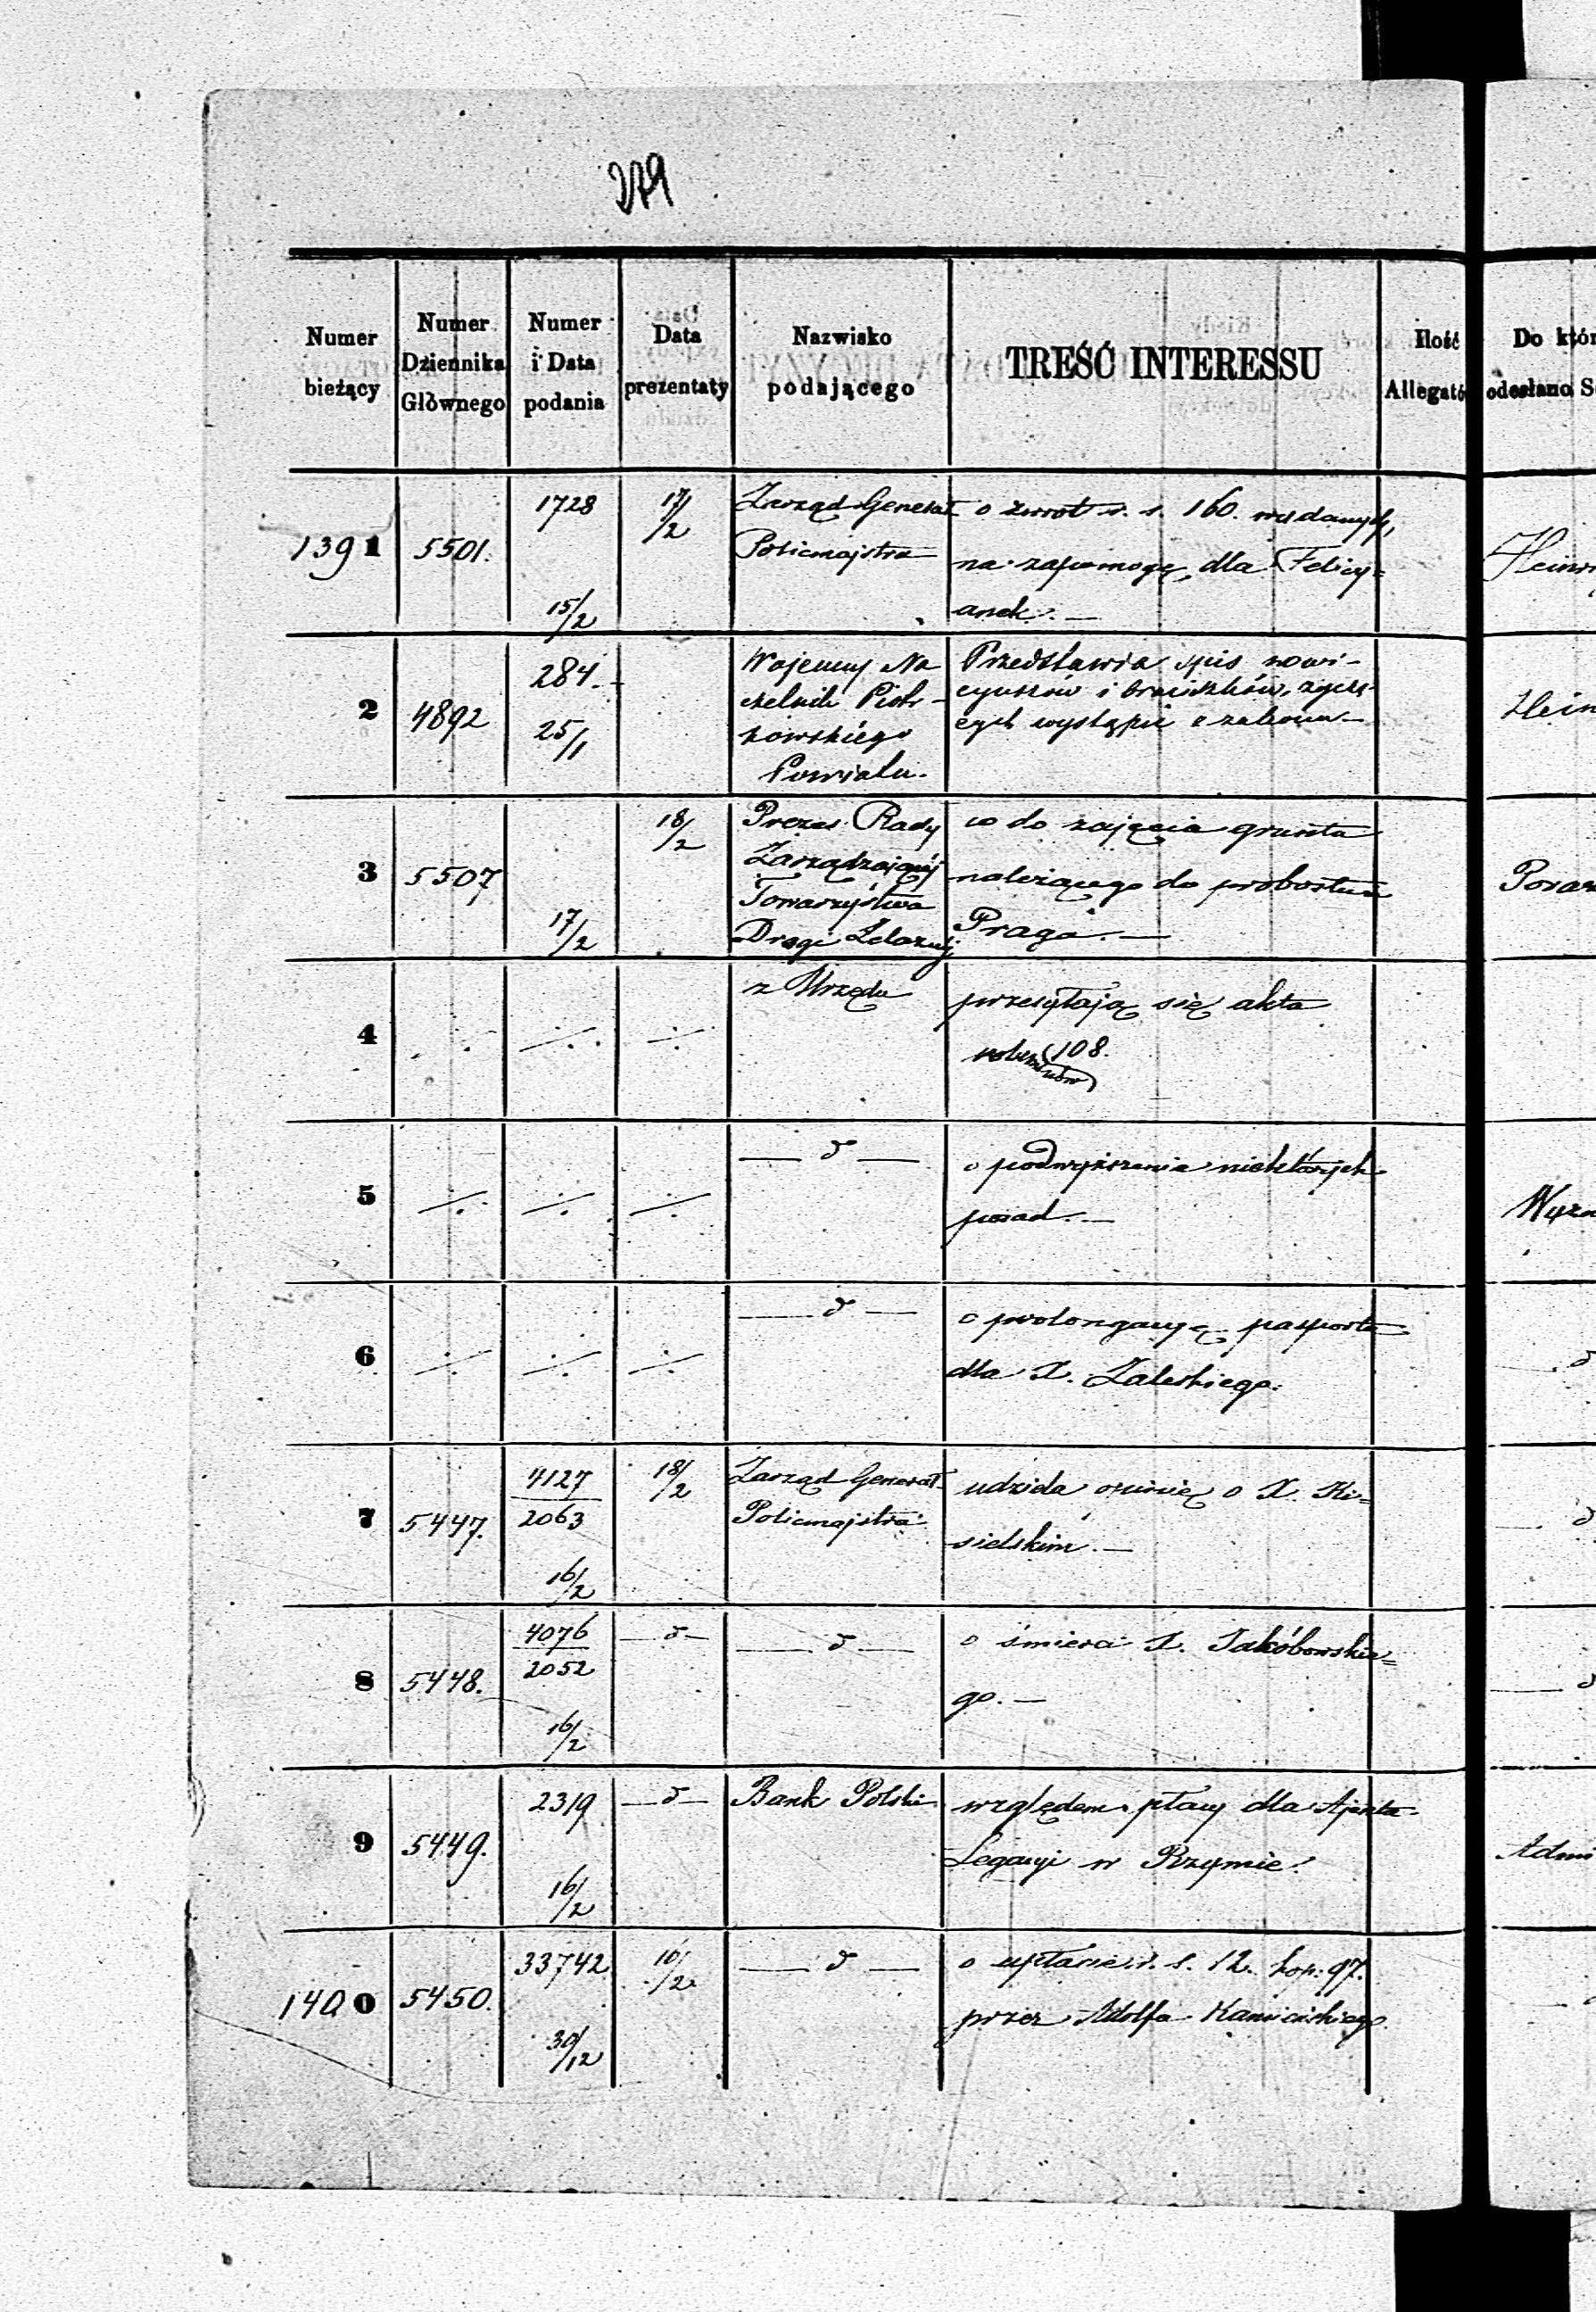 279
Numer bieżący
Numer Dziennika Głównego
Numer i Data podania
Data prezentaty
Nazwisko podającego
TREŚĆ INTERESSU
Ilość Allegató
Do któr
odesłano S
1391
5501.
1728
15/2
17/2
Zarząd Generał
Policmajstra
o zwrot r. s. 160. wydanych,
na zapomogę, dla Felicy=
anek. —
2
4892
284.
25/1
Wojenny Na
czelnik Piotr-
kowskiego
Powiatu.
Przedstawia spis nowi-
cyuszów i braciszków, życzą-
cych wystąpić z zakonu —
Hein
3
5507
17/2
18/2
Prezes Rady
Zarządzającéj
Towarzystwa
Drogi Żelaznéj
co do zajęcia grunta
należącego do probostwa
Praga. —
4
z Urzędu
przesyłają się akta
108.
5
— d —
o podwyższenie niektórych
posad. —
6
— d —
o prolongacyę pasporta
dla X. Zaleskiego.
d
7
5447.
4127
2063
16/2
18/2
Zarząd Generał-
Policmajstra
udziela opinię o X. Ki=
sielskim. —
— d
8
5448.
4076
2052
16/2
— d —
— d —
o śmierci X. Jakóbowskie=
go. —
— d
9
5449.
2319
16/2
— d —
Bank Polski
względem płacy dla Ajenta
Legacyi w Rzymie.
Admi
1400
5450.
33742
30/12
10/2
— d —
o wpłacie r. s. 12. kop. 97.
przez Adolfa